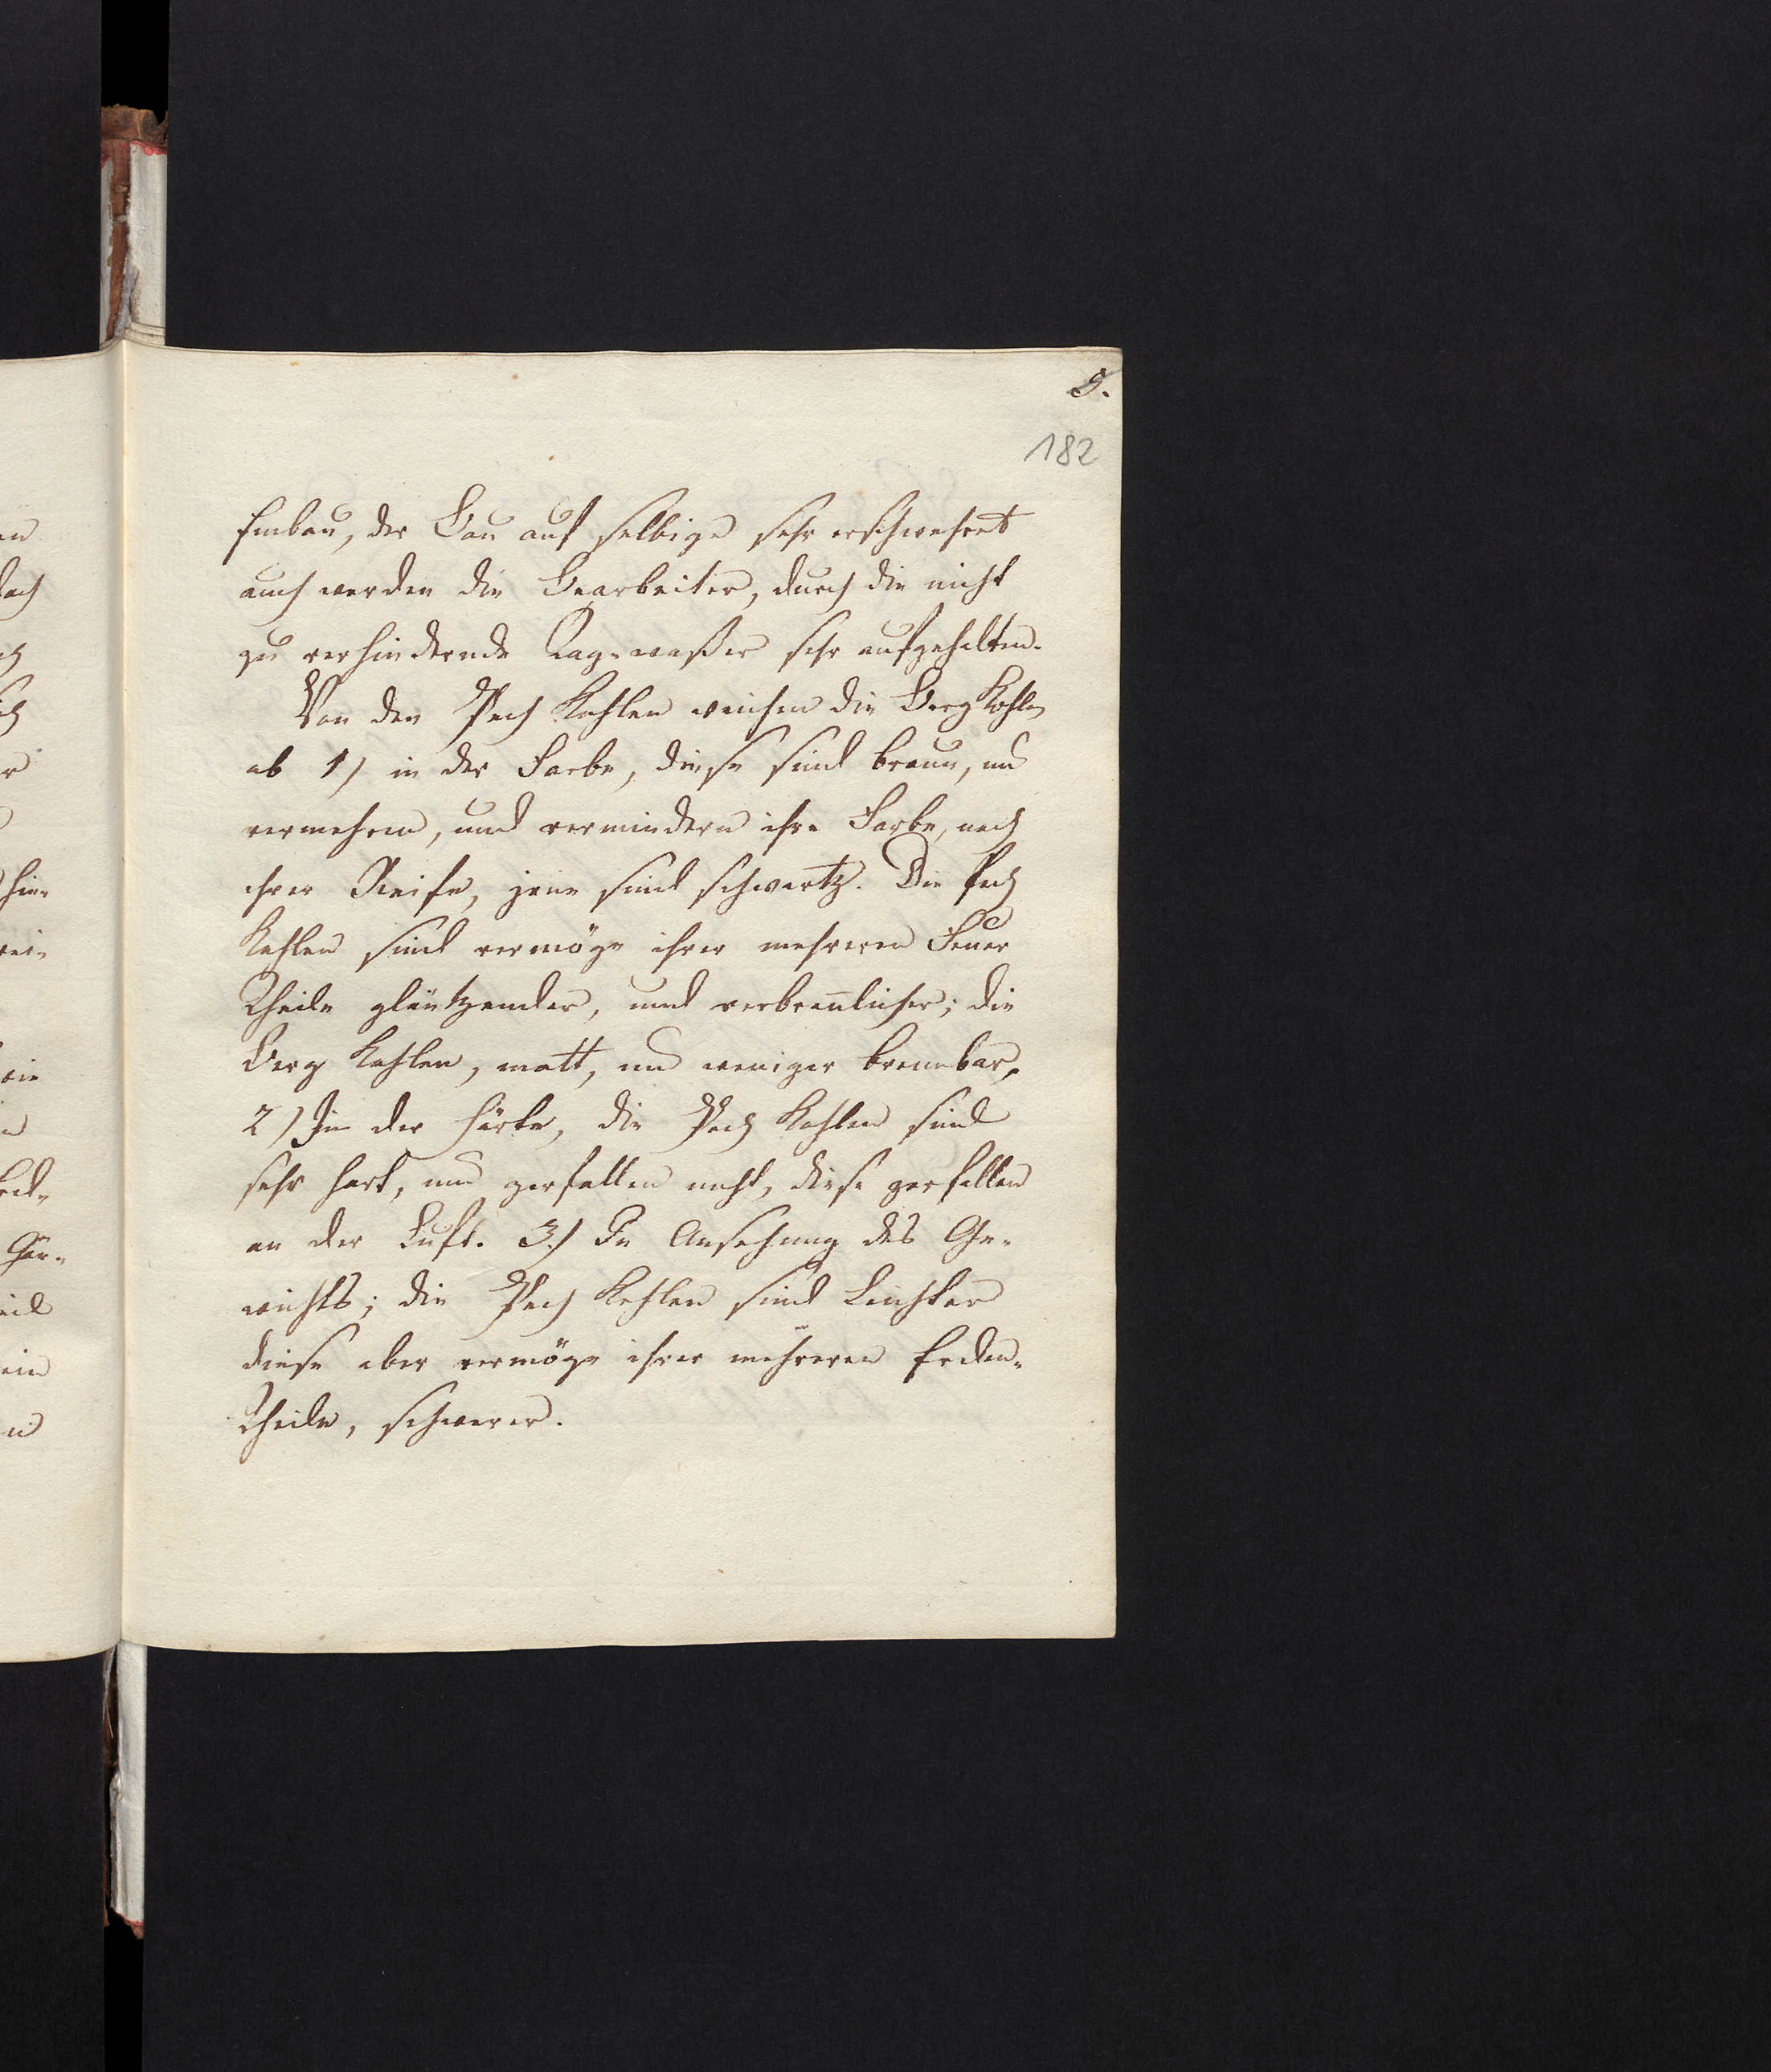 5.
182
Einbau, der Bau auf selbige sehr erschwehret
auch werden die Bearbeiter, durch die nicht
zu verhindernde Tag-waßer sehr aufgehalten.
Von den Pech Kohlen weichen die Berg Kohlen
ab 1) in der Farbe, diese sind braun, und
vermehren, und vermindern ihre Farbe, nach
ihrer Reife, jene sind schwartz. Die Pech
Kohlen sind vermöge ihrer mehreren Feuer
Theile gläntzender, und verbrenlicher; die
Berg Kohlen, matt, und weniger brennbar,
2) In der Härte, die Pech Kohlen sind
sehr hart, und zerfallen nicht, diese zerfallen
an der Luft. 3.) In Ansehung des Ge-
wichts; die Pech Kohlen sind Leichter
diese aber vermöge ihrer mehreren Erden-
Theile, schwerer.